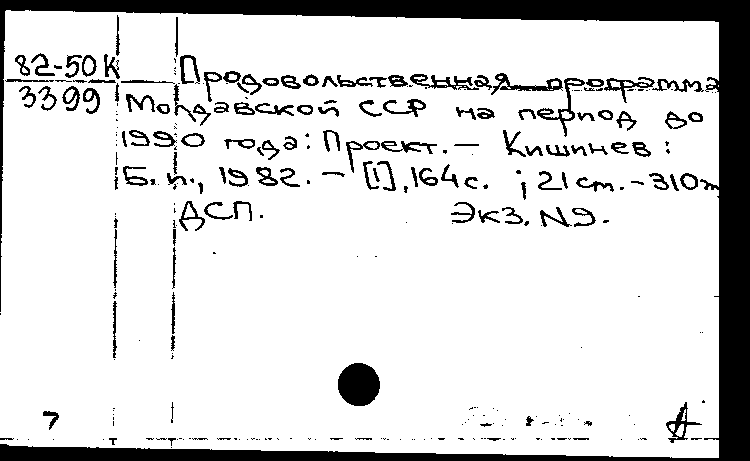 82-50К Продовольственная программа
3399 Молдавской ССР на период до
1990 года: Проект. — Кишинев :
Б. и., 1982. — [1], 164 с. ; 21 см. - 310т
ДСП. Экз. №9.
7